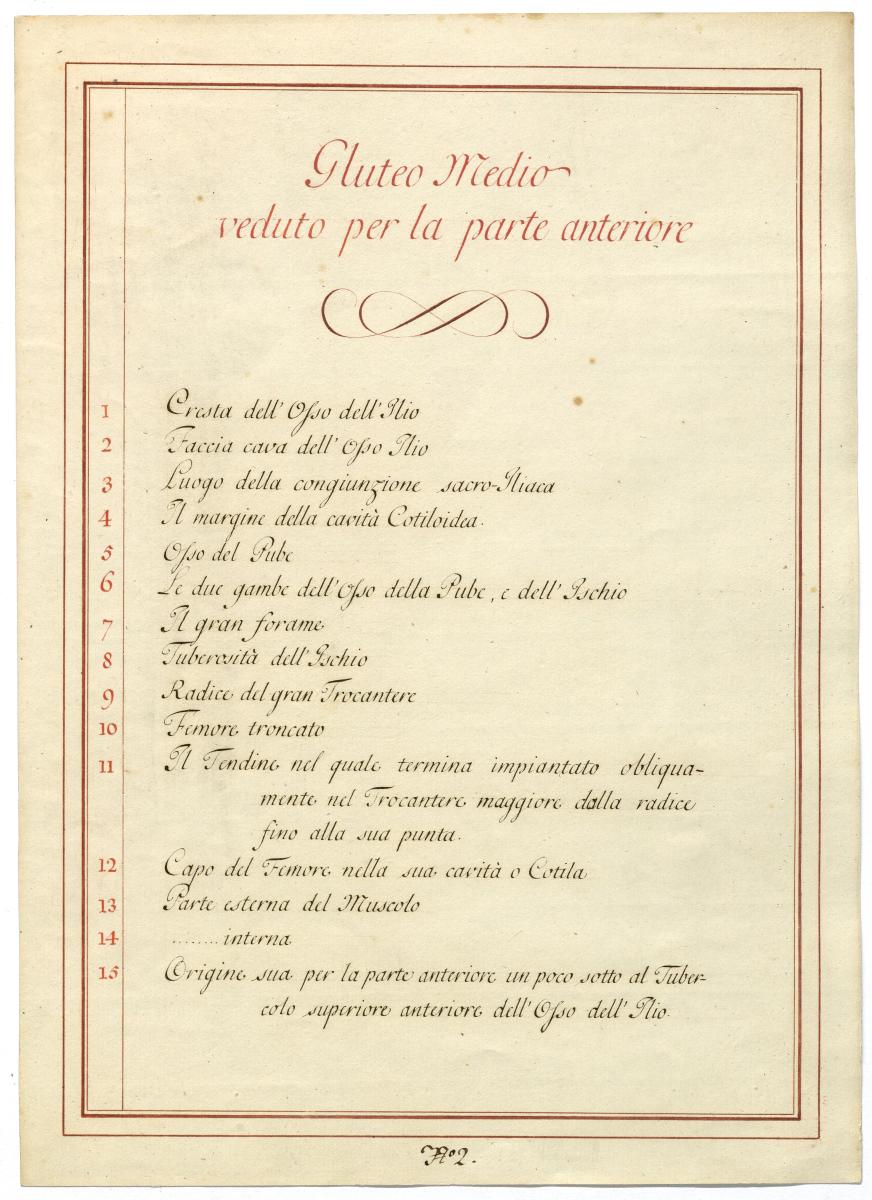 Gluteo Medio
veduto per la parte anteriore
1 Cresta dell' Osso dell' Ilio
2 Faccia cava dell' Osso Ilio
3 Luogo della congiunzione sacro-Iliaca
4 Il margine della cavità Cotiloidea.
5 Osso del Pube
6 Le due gambe dell' Osso della Pube, e dell' Ischio
7 Il gran forame
8 Tuberosità dell' Ischio
9 Radice del gran Trocantere
10 Femore troncato
11 Il Tendine nel quale termina impiantato obliqua-
mente nel Trocantere maggiore dalla radice
fino alla sua punta.
12 Capo del Femore nella sua cavità o Cotila
13 Parte esterna del Muscolo
14 ........ interna
15 Origine sua per la parte anteriore un poco sotto al Tuber-
colo superiore anteriore dell' Osso dell' Ilio.
No 2.